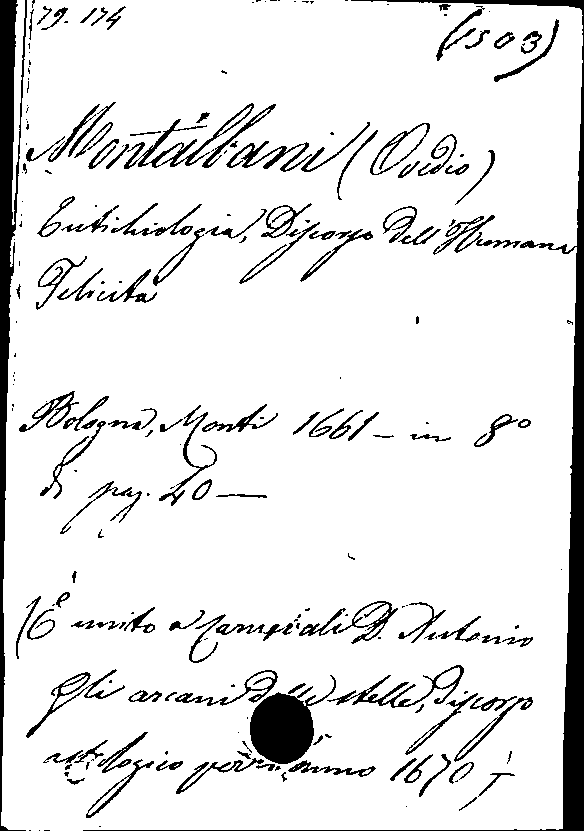 79. 174
(1503)
Montalbani (Ovidio)
Eutichiologia, Discorso dell'Humana
Felicità
Bologna, Monti 1661 – in 8º
di pag. 40 —
(È unito a Carnevali D. Antonio
Gli arcani delle stelle, discorso
astrologico per l'anno 1670)